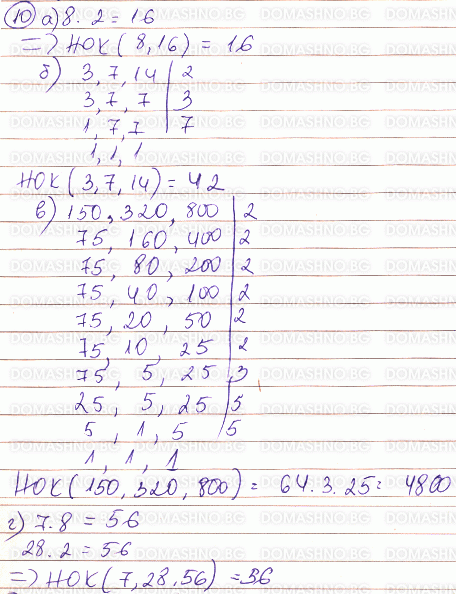 10 а) 8 . 2 = 16
=> НОК ( 8, 16 ) = 16
б) 3, 7, 14 | 2
3, 7, 7 | 3
1, 7, 7 | 7
1, 1, 1
НОК ( 3, 7, 14 ) = 42
в) 150, 320, 800 | 2
75, 160, 400 | 2
75, 80, 200 | 2
75, 40, 100 | 2
75, 20, 50 | 2
75, 10, 25 | 2
75, 5, 25 | 3
25, 5, 25 | 5
5, 1, 5 | 5
1, 1, 1
НОК ( 150, 320, 800 ) = 64 . 3 . 25 = 4800
г) 7 . 8 = 56
28 . 2 = 56
=> НОК ( 7, 28, 56 ) = 56
DOMASHNO.BG